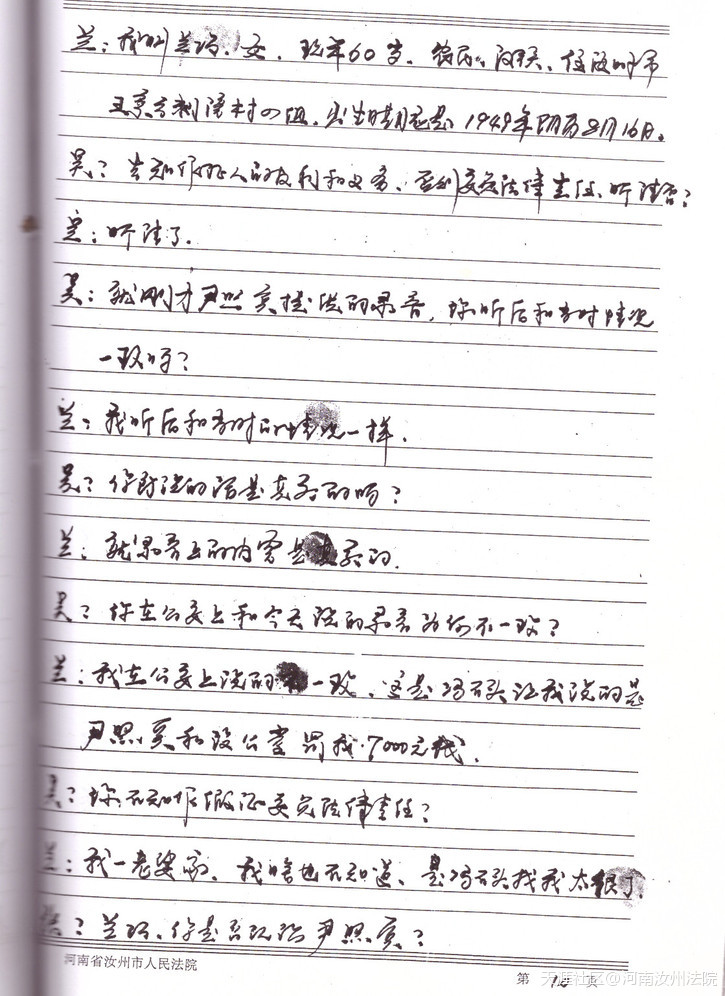 兰：我叫兰玲、女、现年60岁、农民、汉族、住汝州市
王寨乡 村四组、出生日期是1949年阴历2月16日。
吴？告知作证人的权利和义务、否则负法律责任、听清否？
兰：听清了.
吴：就刚才尹照宾提供的录音，你听后和当时情况
一致吗？
兰：我听后和当时的情况一样.
吴？你所说的话是真实的吗？
兰：就录音上的内容是真实的.
吴？你在公安上和今天说的录音为何不一致？
兰：我在公安上说的 一致，这是冯石头让我说的是
尹照宾和段公堂罚我7000元钱.
吴？你不知作假证要负法律责任？
兰：我一老婆家、我啥也不知道、是冯石头找我太狠了.
吴？兰玲、你是否认识尹照宾？
河南省汝州市人民法院
第 页
天涯社区@河南汝州法院